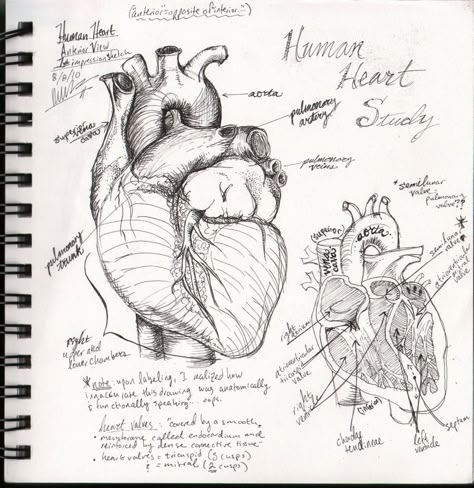 (anterior = opposite of interior...)
Human Heart
Anterior View
1st impression sketch
8/8/10
Human
Heart
Study
aorta
pulmonary
artery
superior
vena
cava
pulmonary
veins
pulmonary
trunk
right
upper and
lower chambers
* semilunar
valve =
pulmonary
valve??
superior
vena
cava
aorta
semilunar
valve *
atrioventricular
right
atrium
atrioventricular
tricuspid
valve
right
ventricle
chordae
tendineae
left
ventricle
septum
* note: upon labeling, I realized how
inaccurate this drawing was anatomically
& functionally speaking... oops.
heart valves = "covered by a smooth
• membrane called endocardium and
reinforced by dense connective tissue"
• heart valves = tricuspid (3 cusps)
& = mitral (2 cusps)